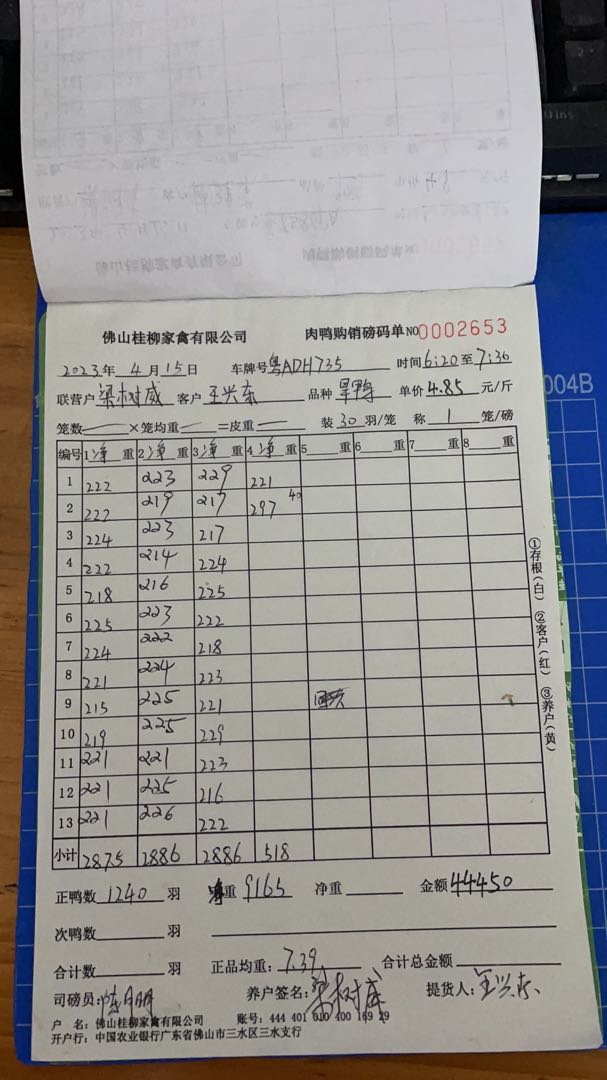 佛山桂柳家禽有限公司 肉鸭购销磅码单 NO0002653
2023年 4月15日 车牌号粤ADH735 时间6:20至7:36
联营户 梁树威 客户 王兴东 品种 旱鸭 单价 4.85 元/斤
笼数 ×笼均重 =皮重 装 30 羽/笼 称 1 笼/磅
编号 1净重 2净重 3净重 4净重 5 重 6 重 7 重 8 重
1 222 223 229 221
2 222 219 217 297 40
3 224 223 217
4 222 214 224
5 218 216 225
6 225 223 222
7 224 222 218
8 221 224 223
9 215 225 221
10 219 225 229
11 221 221 223
12 221 225 216
13 221 226 222
小计 2875 2886 2886 518
正鸭数 1240 羽 净重 9165 净重 金额 44450
次鸭数 羽
合计数 羽 正品均重: 7.39 合计总金额
司磅员: 养户签名: 梁树威 提货人: 王兴东
户 名: 佛山桂柳家禽有限公司 账号: 444 401 010 400 169 29
开户行: 中国农业银行广东省佛山市三水区三水支行
①存根(白) ②客户(红) ③养户(黄)
004B